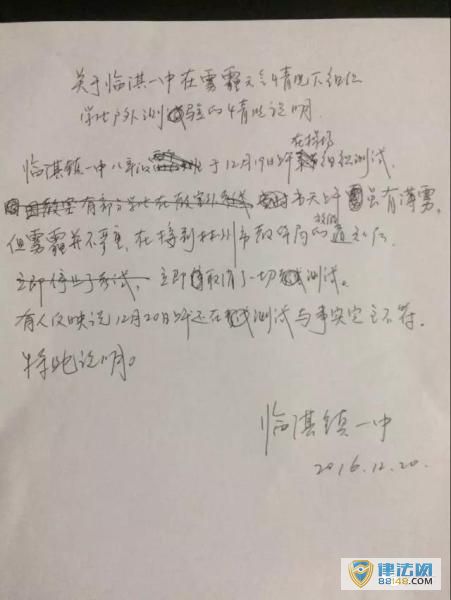 关于临淇一中在雾霾天气情况下组织
学生户外测试验的情况说明
临淇镇一中八年级于12月19日上午在操场组织测试。
有部分学生在教室外考试，当天上午虽有薄雾，
但雾霾并不严重，在接到林州市教体局的放假通知后
立即停止了考试，立即取消了一切测试。
有人反映说12月20日上午还在测试与事实完全不符。
特此说明。
临淇镇一中
2016.12.20.
律法网
88148.com